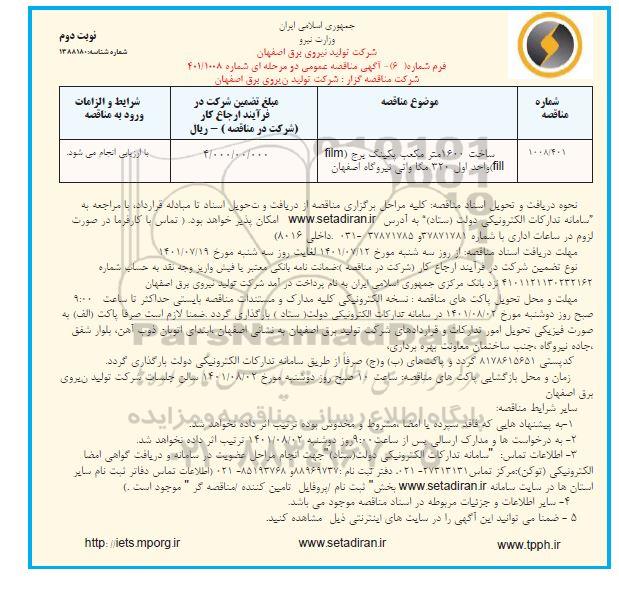 جمهوری اسلامی ایران
وزارت نیرو
شرکت تولید نیروی برق اصفهان
نوبت دوم
شماره شناسه: ۱۳۸۸۱۸۰
فرم شماره( ۶)- آگهی مناقصه عمومی دو مرحله ای شماره ۴۰۱/۱۰۰۸
شرکت مناقصه گزار : شرکت تولید نیروی برق اصفهان
شماره مناقصه
موضوع مناقصه
مبلغ تضمین شرکت در فرآیند ارجاع کار (شرکت در مناقصه ) – ریال
شرایط و الزامات ورود به مناقصه
۱۰۰۸/۴۰۱
ساخت ۱۶۰۰متر مکعب پکینگ برج (film
fill)واحد اول ۳۲۰ مگا واتی نیروگاه اصفهان
۴/۰۰۰/۰۰/۰۰۰
با ارزیابی انجام می شود.
نحوه دریافت و تحویل اسناد مناقصه: کلیه مراحل برگزاری مناقصه از دریافت و تحویل اسناد تا مبادله قرارداد، با مراجعه به
"سامانه تدارکات الکترونیکی دولت (ستاد)" به آدرس www.setadiran.ir امکان پذیر خواهد بود. ( تماس با کارفرما در صورت
لزوم در ساعات اداری با شماره ۳۷۸۷۱۷۸۱و ۳۷۸۷۱۷۸۵ -۰۳۱ .داخلی ۸۰۱۶)
مهلت دریافت اسناد مناقصه: از روز سه شنبه مورخ ۱۴۰۱/۰۷/۱۲ لغایت روز سه شنبه مورخ ۱۴۰۱/۰۷/۱۹
نوع تضمین شرکت در فرآیند ارجاع کار (شرکت در مناقصه ):ضمانت نامه بانکی معتبر یا فیش واریز وجه نقد به حساب شماره
۴۱۰۱۱۲۱۱۳۰۲۳۲۱۶۲ نزد بانک مرکزی جمهوری اسلامی ایران به نام پرداخت در آمد شرکت تولید نیروی برق اصفهان
مهلت و محل تحویل پاکت های مناقصه : نسخه الکترونیکی کلیه مدارک و مستندات مناقصه بایستی حداکثر تا ساعت ۹:۰۰
صبح روز دوشنبه مورخ ۱۴۰۱/۰۸/۰۲ در سامانه تدارکات الکترونیکی دولت( ستاد ) بارگذاری گردد .ضمنا لازم است صرفا پاکت (الف) به
صورت فیزیکی تحویل امور تدارکات و قراردادهای شرکت تولید برق اصفهان به نشانی اصفهان ،ابتدای اتوبان ذوب آهن، بلوار شفق
،جاده نیروگاه ،جنب ساختمان معاونت بهره برداری،
کدپستی ۸۱۷۸۶۱۵۶۵۱ گردد و پاکت‌های (ب) و(ج) صرفاً از طریق سامانه تدارکات الکترونیکی دولت بارگذاری گردد.
زمان و محل بازگشایی پاکت های مناقصه: ساعت ۱۰ صبح روز دوشنبه مورخ ۱۴۰۱/۰۸/۰۲ سالن جلسات شرکت تولید نیروی
برق اصفهان
سایر شرایط مناقصه:
۱-به پیشنهاد هایی که فاقد سپرده یا امضا ،مشروط و مخدوش بوده ترتیب اثر داده نخواهد شد.
۲- به درخواست ها و مدارک ارسالی پس از ساعت ۹:۰۰روز دوشنبه ۱۴۰۱/۰۸/۰۲ ترتیب اثر داده نخواهد شد.
۳- اطلاعات تماس: "سامانه تدارکات الکترونیکی دولت(ستاد)"جهت انجام مراحل عضویت در سامانه و دریافت گواهی امضا
الکترونیکی (توکن):مرکز تماس۲۷۳۱۳۱۳۱-۰۲۱. دفتر ثبت نام :۸۸۹۶۹۷۳۷و ۸۵۱۹۳۷۶۸- ۰۲۱ (اطلاعات تماس دفاتر ثبت نام سایر
استان ها در سایت سامانه www.setadiran.ir بخش" ثبت نام /پروفایل تامین کننده /مناقصه گر " موجود است .)
۴- سایر اطلاعات و جزئیات مربوطه در اسناد مناقصه موجود می باشد.
۵ - ضمنا می توانید این آگهی را در سایت های اینترنتی ذیل مشاهده کنید.
http: //iets.mporg.ir www.setadiran.ir www.tpph.ir